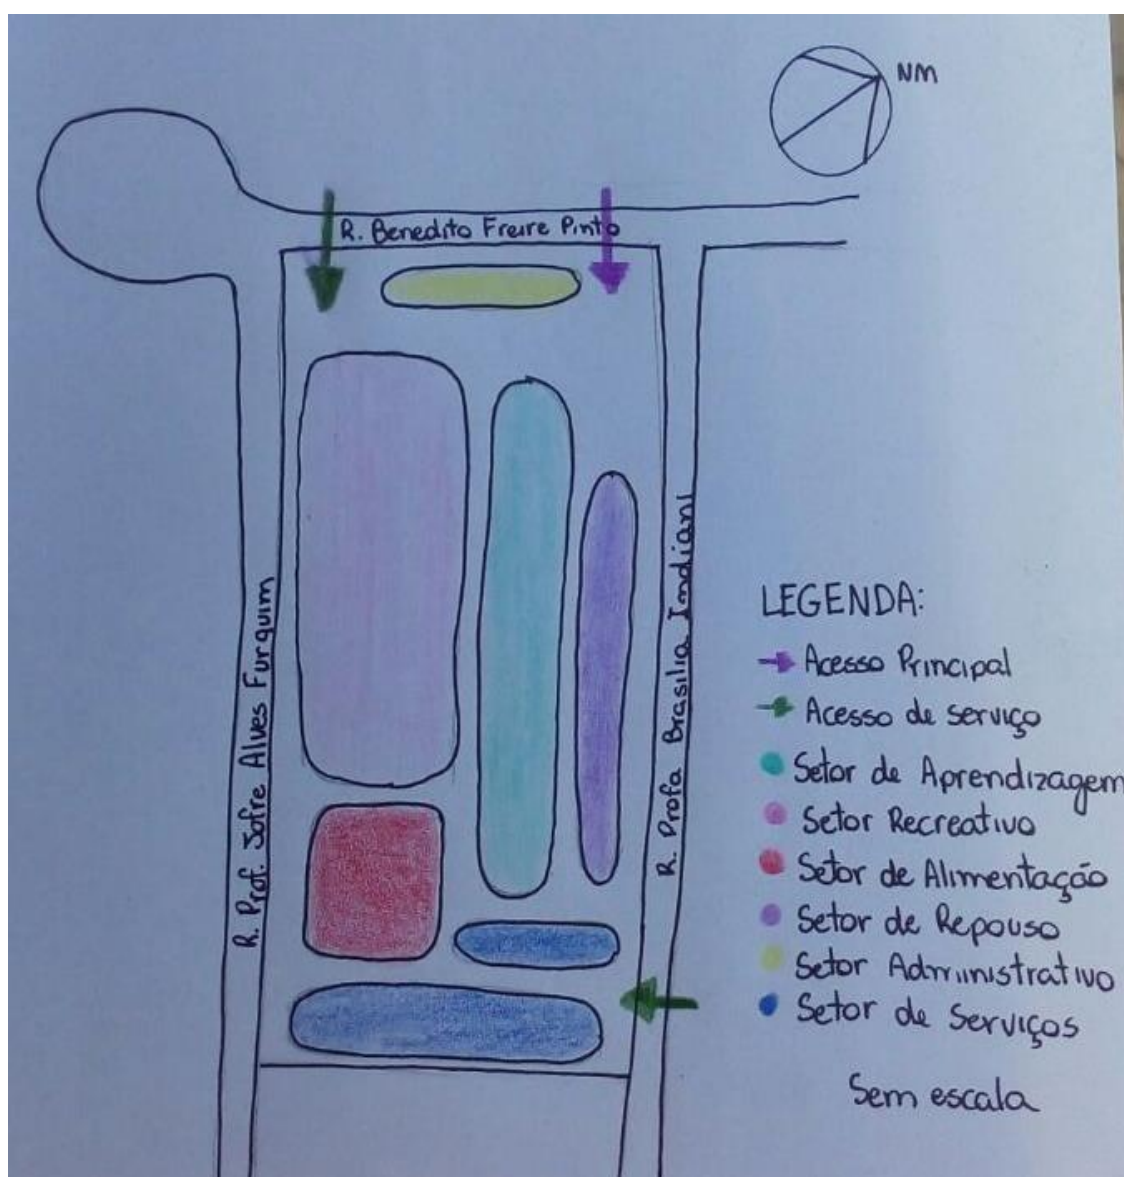 NM
R. Benedito Freire Pinto
R. Prof. Jofre Alves Furquim
R. Profa Brasilia Indiani
LEGENDA:
Acesso Principal
Acesso de serviço
Setor de Aprendizagem
Setor Recreativo
Setor de Alimentação
Setor de Repouso
Setor Administrativo
Setor de Serviços
Sem escala